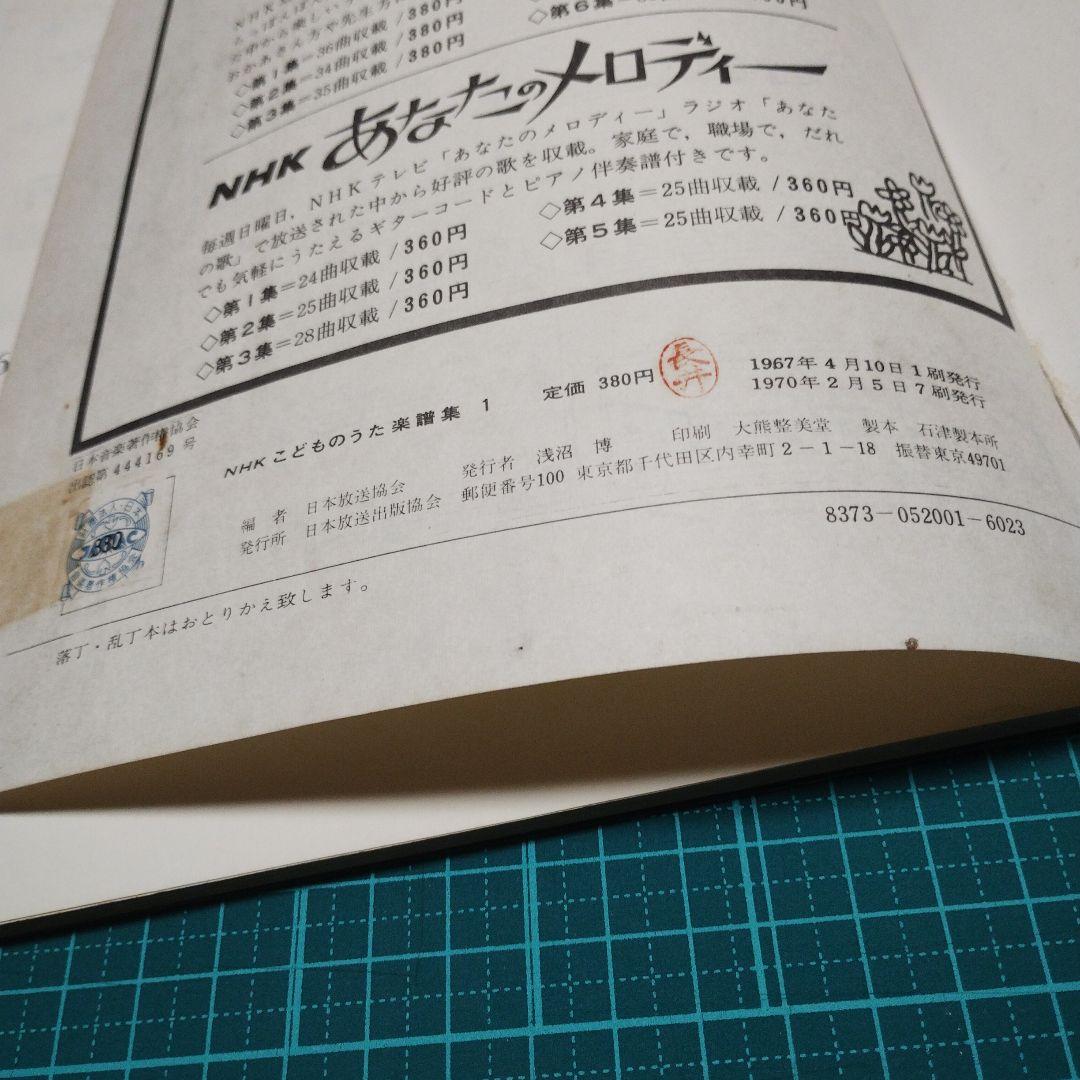 ◇第6集
◇第1集=36曲収載 / 380円
◇第2集=34曲収載 / 380円
◇第3集=35曲収載 / 380円
NHK あなたのメロディー
毎週日曜日，NHKテレビ「あなたのメロディー」ラジオ「あなた
の歌」で放送された中から好評の歌を収載。家庭で，職場で，だれ
でも気軽にうたえるギターコードとピアノ伴奏譜付きです。
◇第1集=24曲収載 / 360円
◇第2集=25曲収載 / 360円
◇第3集=28曲収載 / 360円
◇第4集=25曲収載 / 360円
◇第5集=25曲収載 / 360円
日本音楽著作権協会
出認第 444169 号
380
NHK こどものうた楽譜集 1
定価 380円
長井
1967年 4月10日 1 刷発行
1970年 2月 5日 7 刷発行
編 者 日本放送協会 発行者 浅沼 博 印刷 大熊整美堂 製本 石津製本所
発行所 日本放送出版協会 郵便番号100 東京都千代田区内幸町 2-1-18 振替東京49701
8373-052001-6023
落丁・乱丁本はおとりかえ致します。